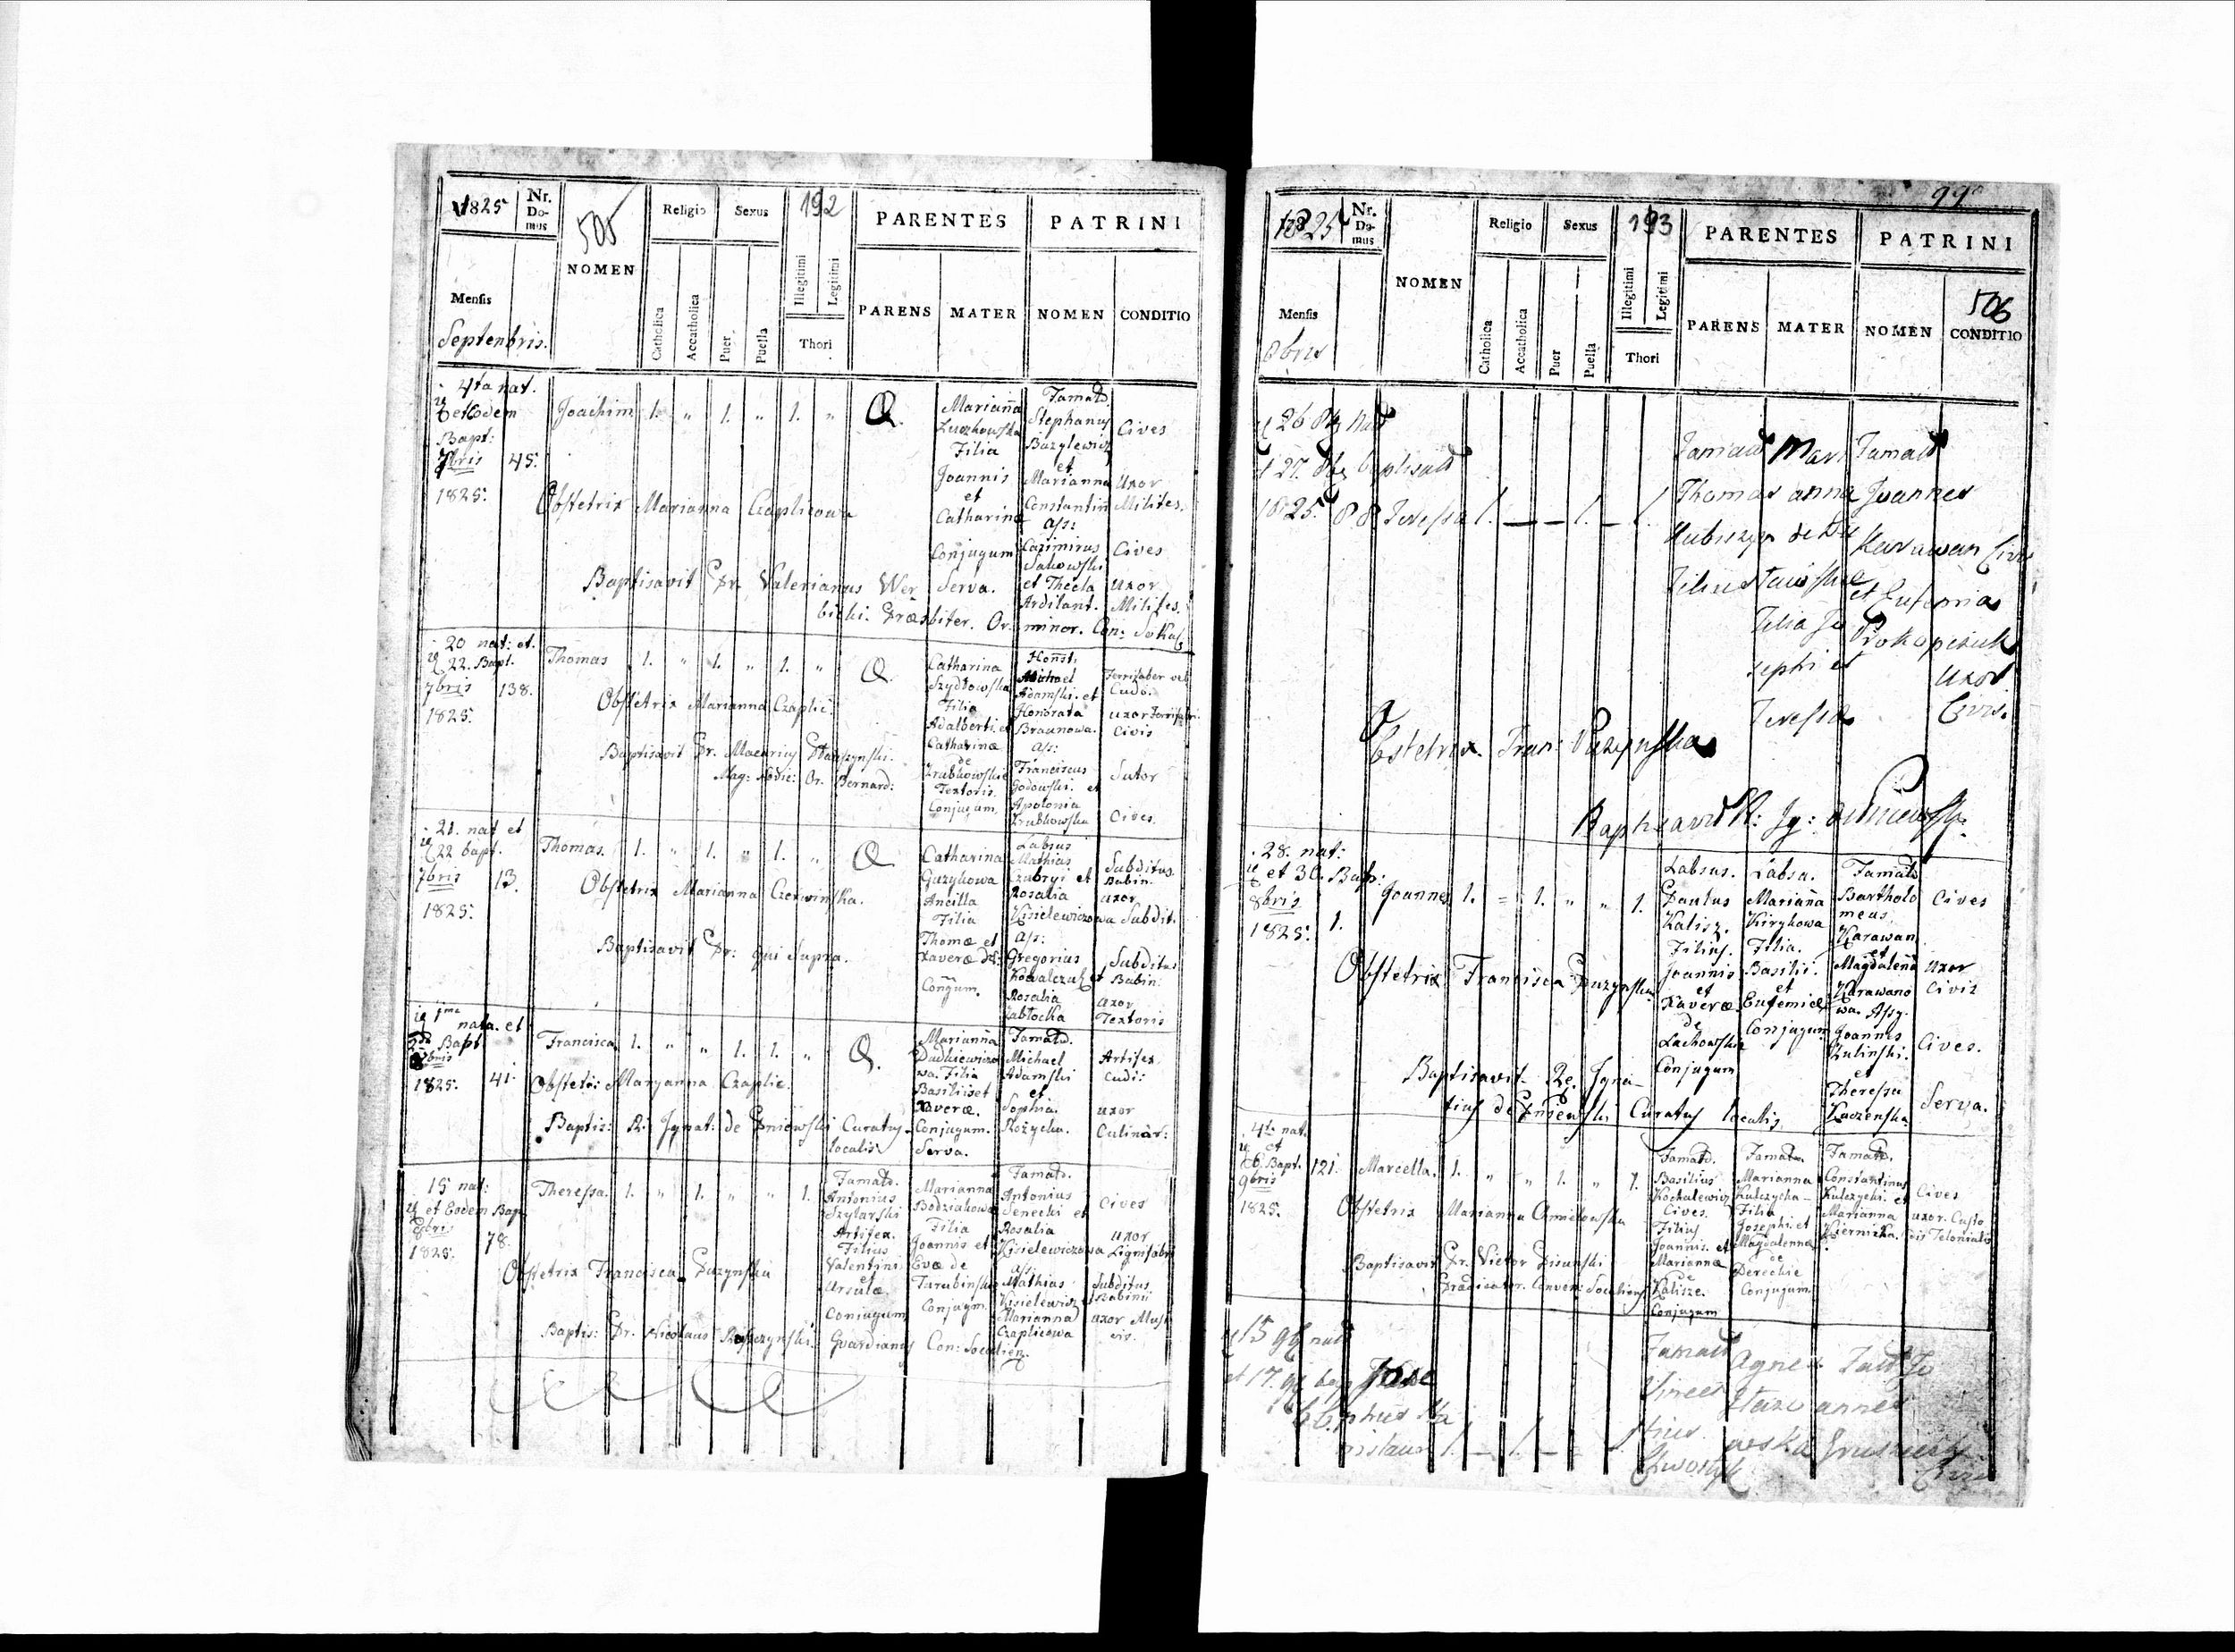 1825
Nr. Do- mus
505
NOMEN
Religio
Sexus
192
PARENTES
PATRINI
Mensis
Septenbris.
Catholica
Accatholica
Puer
Puella
Illegitimi
Legitimi
Thori
PARENS
MATER
NOMEN
CONDITIO
4ta nat.
et Eodem
Bapt:
7bris
1825.
45.
Joachim
1. „ 1. „ 1. „
Marianna
Filia
Joannis
et
Catharina
Conjugum
Serva.
Famatd
Stephanus
Bazylewicz
et
Marianna
Constantin
Ass:
Cazimirus
Sakowski
et Thecla
Ardilant.
Cives
Uxor
Milites.
Cives
Uxor
Milites.
Obstetrix Marianna Czaplicowa
Baptisavit Pr. Valerianus Wer
bicki. Præsbiter. Or. minor. Con: Sokal
20 nat: et.
22. Bapt.
7bris
1825.
138.
Thomas
1. „ 1. „ 1. „
Catharina
Szydłowska
Filia
Adalberti et
Catharinæ
de
Zrubkowskie
Textoris
Conjugum
Honst.
Michael
Adamski. et
Honorata
Braunowa.
Ass:
Franciscus
Godowski. et
Apolonia
Zrubkowska
Ferrifaber vel
Cudo.
uxor Ferrifabri.
Civis
Sutor
Cives.
Obstetrix Marianna Czaplic.
Baptisavit Pr. Macarius
Mag: Or. Bernard:
21. nat et
22 bapt.
7bris
1825.
13.
Thomas.
1. „ 1. „ 1. „
Catharina
Guzykowa
Ancilla
Filia
Thomæ et
Xaveræ de:
Conjugum.
Labsus
Mathias
Czubryi et
Rosalia
Kisielewiczowa
Ass:
Gregorius
Kowalczuk et
Rosalia
Zabłocka
Subditus
Babin.
uxor
Subdit.
Subditus
Babin:
uxor
Textoris
Obstetrix Marianna Czerwinska.
Baptisavit Pr: qui Supra.
1ma nata. et
2da Bapt
8bris
1825.
41.
Francisca
1. „ „ 1. 1. „
Marianna
Dudkiewiczo
wa. Filia
Basilii et
Xaveræ.
Conjugum.
Serva.
Famatd.
Michael
Adamski
et
Sophia
Rożycka.
Artifex
Cudi:
uxor
Culinar:
Obstetri: Maryanna Czaplic.
Baptis: R: Ignat: de Pniewski Curatus
localis
15 nat:
et Eodem Bap.
8bris
1825.
78.
Theressa.
1. „ 1. „ „ 1.
Famatd.
Antonius
Szylarski
Artifex.
Filius
Valentini
et
Ursulæ.
Conjugum
Marianna
Bodziakowa
Filia
Joannis et
Evæ de
Tarabinskie
Conjugm.
Famatd.
Antonius
Senecki et
Rosalia
Kisielewiczowa
ass:
Mathias
Kisielewicz
Marianna
Czaplicowa
Cives
uxor
Lignifabri
Subditus
Babinii
uxor Musi
cis.
Obstetrix Francisca Puzynska
Baptis: Pr. Nicolaus Gvardianus Con: Socalien.
99
1825
Nr. Do- mus
NOMEN
Religio
Sexus
193
PARENTES
PATRINI
506
Mensis
8bris
Catholica
Accatholica
Puer
Puella
Illegitimi
Legitimi
Thori
PARENS
MATER
NOMEN
CONDITIO
26 8br Nat
et 27. 8br baptisatd
1825.
88
Teressa
1. — — 1. — 1.
Famatd
Thomas
Filius
Mari
anna
Filia Jo
sephi et
Teressa
Famatd
Joannes
Karawan
et Eufemia
Prokopczuk
Civis
Uxor
Civis.
Obstetrix. Fran: Puzynska
Baptisavit R: Ig: de Pniewski
28. nat:
et 30. Bap:
8bris
1825.
1.
Joannes
1. = 1. „ „ 1.
Labsus.
Paulus
Kalisz.
Filius.
Joannis
et
Xaveræ
de
Lachowskie
Conjugum
Labsa.
Marianna
Kirykowa
Filia.
Basilii.
et
Eufemiæ
Conjugum
Famatd
Bartholo
meus
Karawan
et
Magdalena
Karawano
wa. Assy.
Joannis
Kulinski.
et
Theressa
Kuczenska
Cives
uxor
Civis
Cives.
Serva.
Obstetrix Francisca Puzynska
Baptisavit Re. Igna-
tius de Pniewski Curatus localis
4ta nat.
et
6. Bapt.
9bris
1825.
121.
Marcella.
1. „ „ 1. „ 1.
Famatd.
Basilius
Kochalewicz
Cives.
Filius
Joannis. et
Mariannæ
de
Kalisze.
Conjugum
Famata.
Marianna
Kulczycka
Filia
Josephi et
Magdalennæ
de
Derechie
Conjugum
Famatd.
Constantinus
Kulczycki. et
Marianna
Piernicka.
Cives
uxor. Custo
dis Telonialis
Obstetrix Marianna Amielowska
Baptisavit Pr. Victor Pisunski
Prædicator. Conven: Socaliens
15 9br nat
et 17. 9br bap
Jose
phus Sta
nislaus
1. — 1. — — 1.
Famatd
Vincen
tius
Agnes
Fatd Jo
annes
Civis